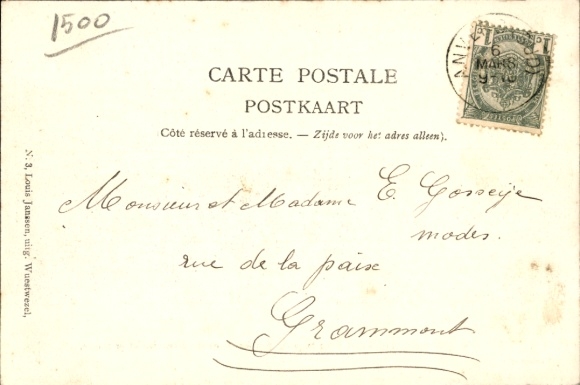 1500
6
MARS
CARTE POSTALE
POSTKAART
(Côté réservé à l'adresse. — Zijde voor het adres alleen).
Monsieur et Madame E. Gosseije
modes.
rue de la paix
Grammont
N. 3, Louis Janssen, uitg. Wuestwezel,